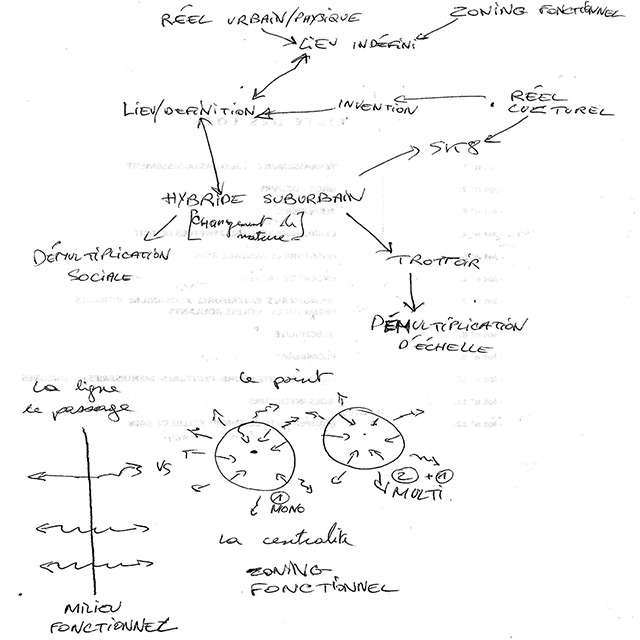 RÉEL URBAIN/PHYSIQUE
ZONING FONCTIONNEL
LIEU INDÉFINI
LIEU/DEFINITION
INVENTION
RÉEL
CULTUREL
SK8
HYBRIDE SUBURBAIN
[Changement de
nature]
DÉMULTIPLICATION
SOCIALE
TROTTOIR
DÉMULTIPLICATION
D'ÉCHELLE
La ligne
le passage
le point
VS
1
MONO
2 + 1
MULTI.
la centralité
ZONING
FONCTIONNEL
MILIEU
FONCTIONNEL